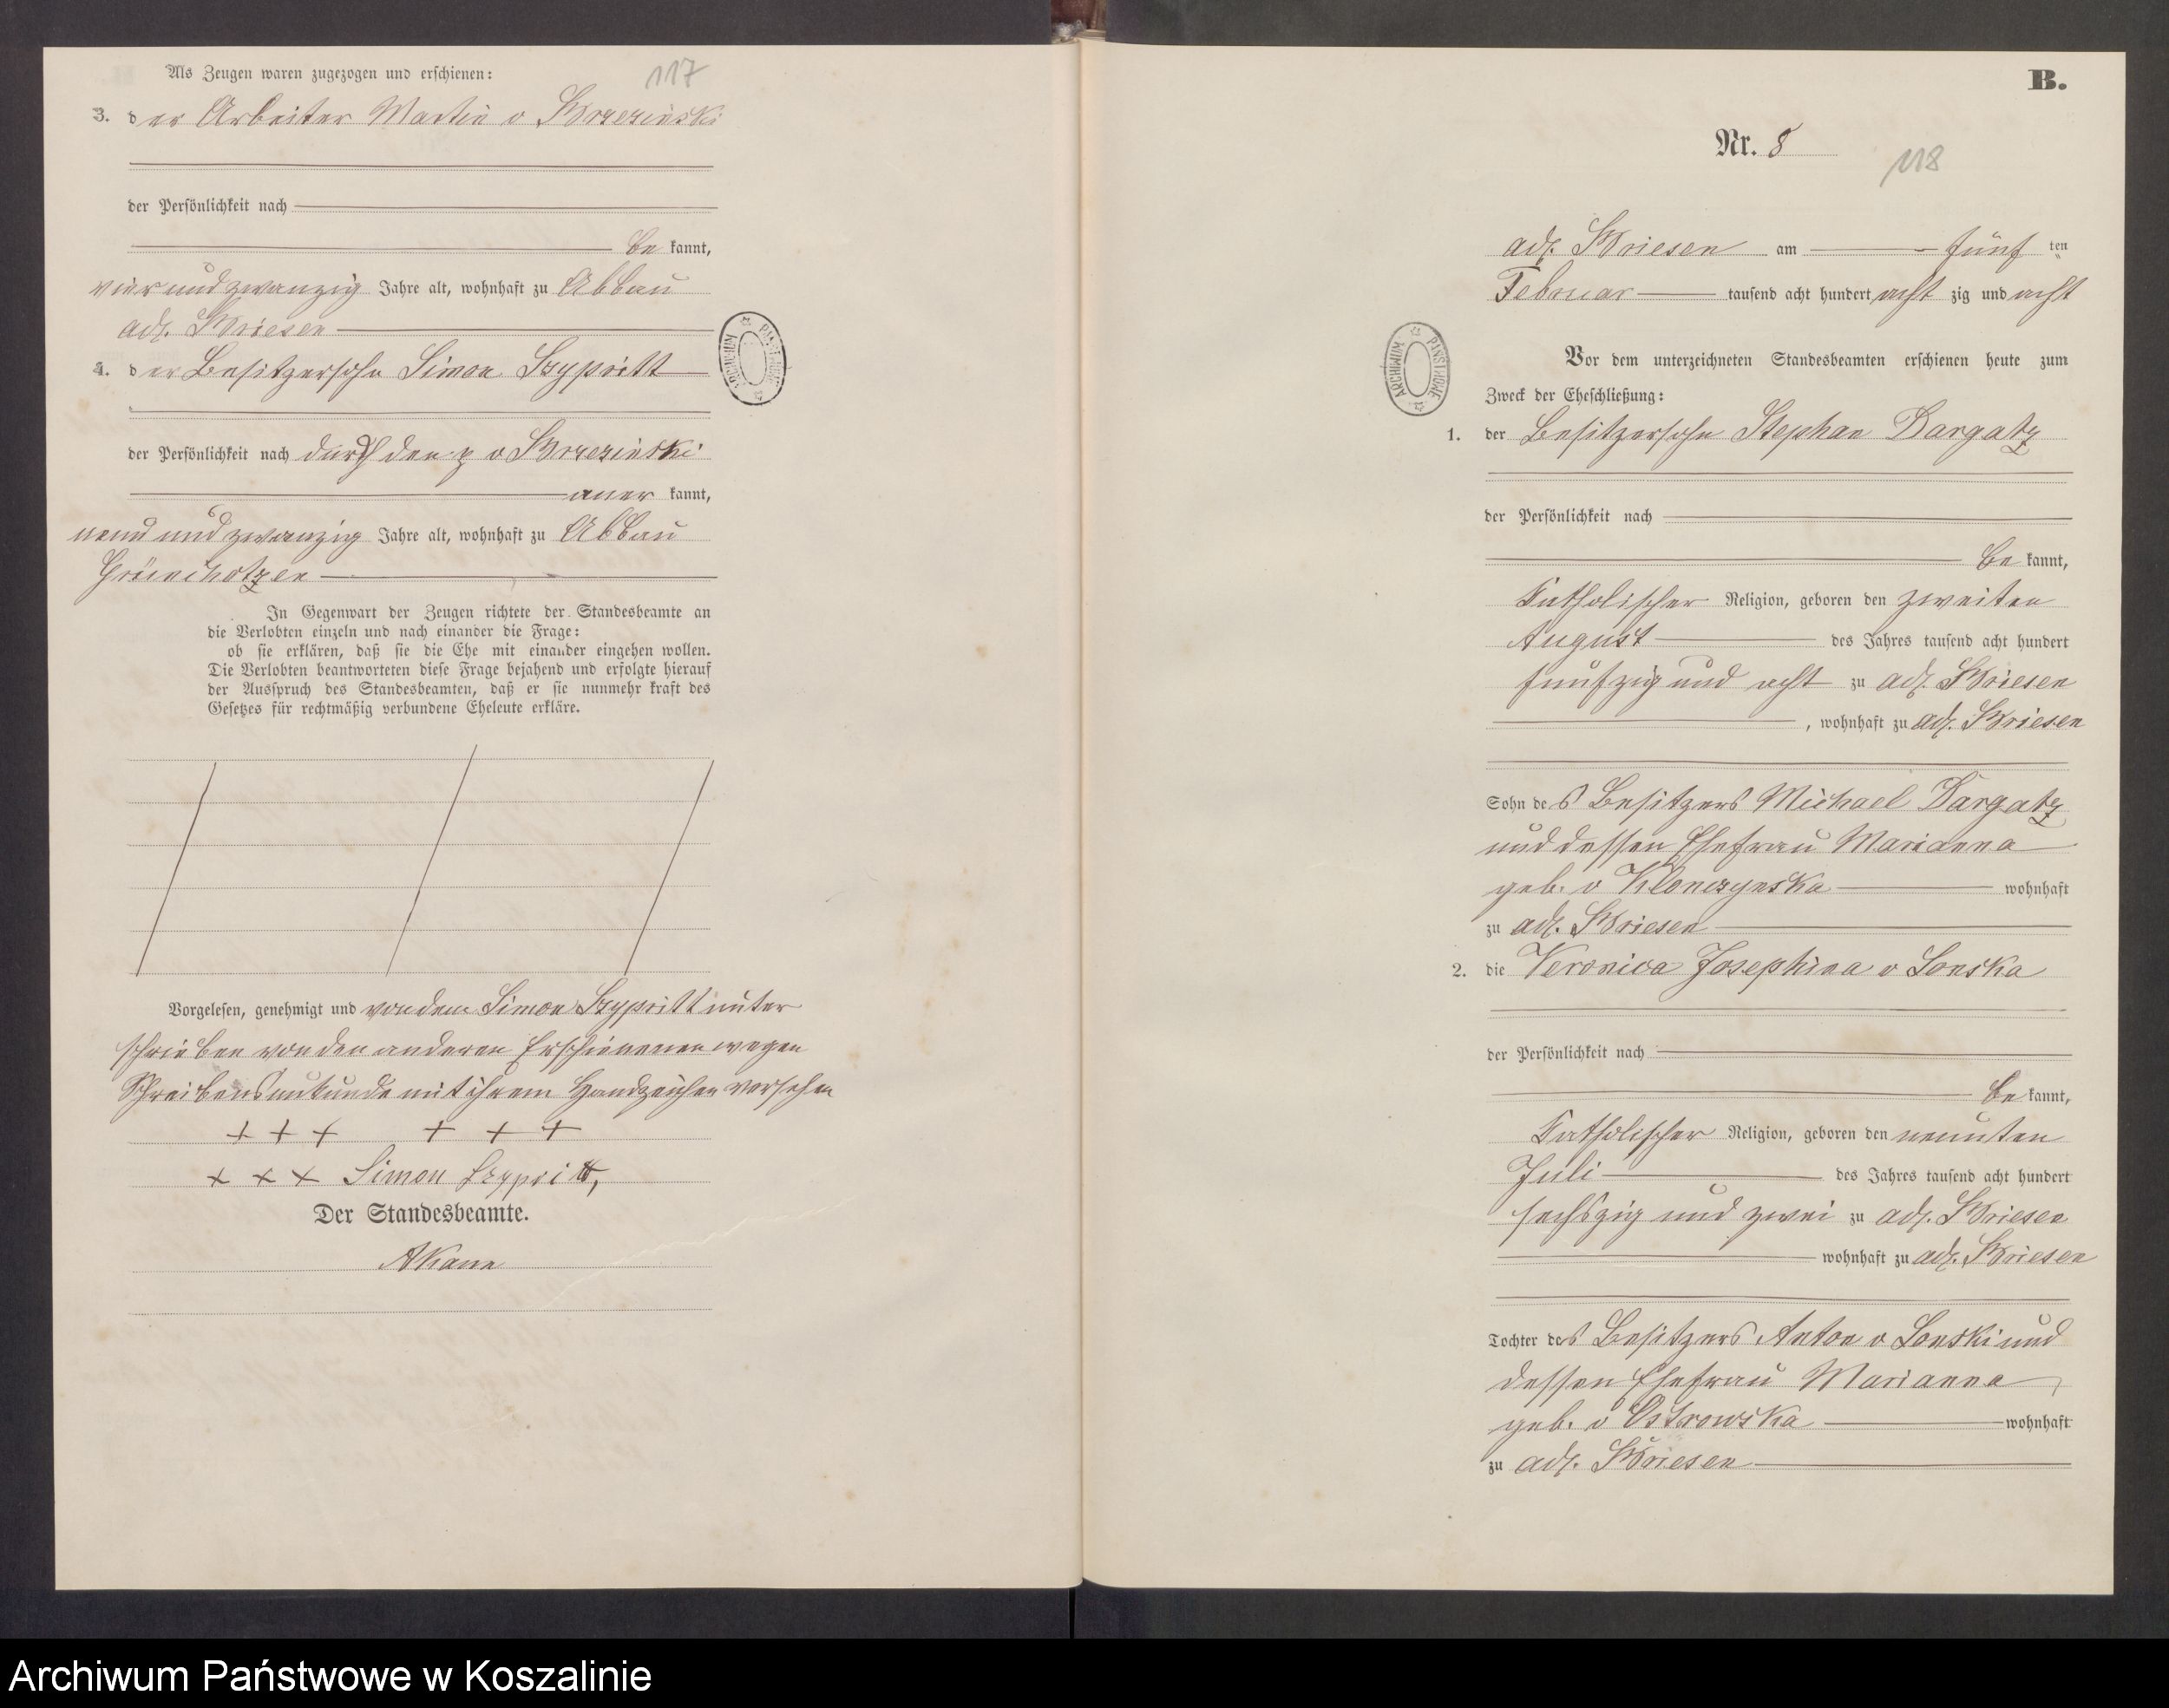 Als Zeugen waren zugezogen und erschienen:
117
3. der Arbeiter Martin v Wrzezinski
der Persönlichkeit nach
be kannt,
vier und zwanzig Jahre alt, wohnhaft zu Abbau
adl. Briesen
4. der Besitzersohn Simon Szypritt
der Persönlichkeit nach durch den p v Wrzezinski
aner kannt,
neun und zwanzig Jahre alt, wohnhaft zu Abbau
Grünchotzen
In Gegenwart der Zeugen richtete der Standesbeamte an
die Verlobten einzeln und nach einander die Frage:
ob sie erklären, daß sie die Ehe mit einander eingehen wollen.
Die Verlobten beantworteten diese Frage bejahend und erfolgte hierauf
der Ausspruch des Standesbeamten, daß er sie nunmehr kraft des
Gesetzes für rechtmäßig verbundene Eheleute erkläre.
Vorgelesen, genehmigt und von dem Simon Szypritt unter
schrieben von den anderen Erschienenen wegen
Schreibensunkunde mit ihrem Handzeichen versehen
+++ + + +
+ + + Simon Szypritt,
Der Standesbeamte.
AKann
ARCHIWUM PAŃSTWOWE
B.
Nr. 8
118
adl. Briesen am fünf ten
Februar tausend acht hundert acht zig und acht
ARCHIWUM PAŃSTWOWE
Vor dem unterzeichneten Standesbeamten erschienen heute zum
Zweck der Eheschließung:
1. der Besitzersohn Stephan Dargatz
der Persönlichkeit nach
be kannt,
katholischer Religion, geboren den zweiten
August des Jahres tausend acht hundert
fünfzig und acht zu adl. Briesen
, wohnhaft zu adl. Briesen
Sohn des Besitzers Michael Dargatz
und dessen Ehefrau Marianna
geb. v Klonczynska wohnhaft
zu adl. Briesen
2. die Veronica Josephina v Lonska
der Persönlichkeit nach
be kannt,
katholischer Religion, geboren den neunten
Juli des Jahres tausend acht hundert
sechszig und zwei zu adl. Briesen
wohnhaft zu adl. Briesen
Tochter des Besitzers Anton v Lonski und
dessen Ehefrau Marianna
geb. v Ostrowska wohnhaft
zu adl. Briesen
Archiwum Państwowe w Koszalinie